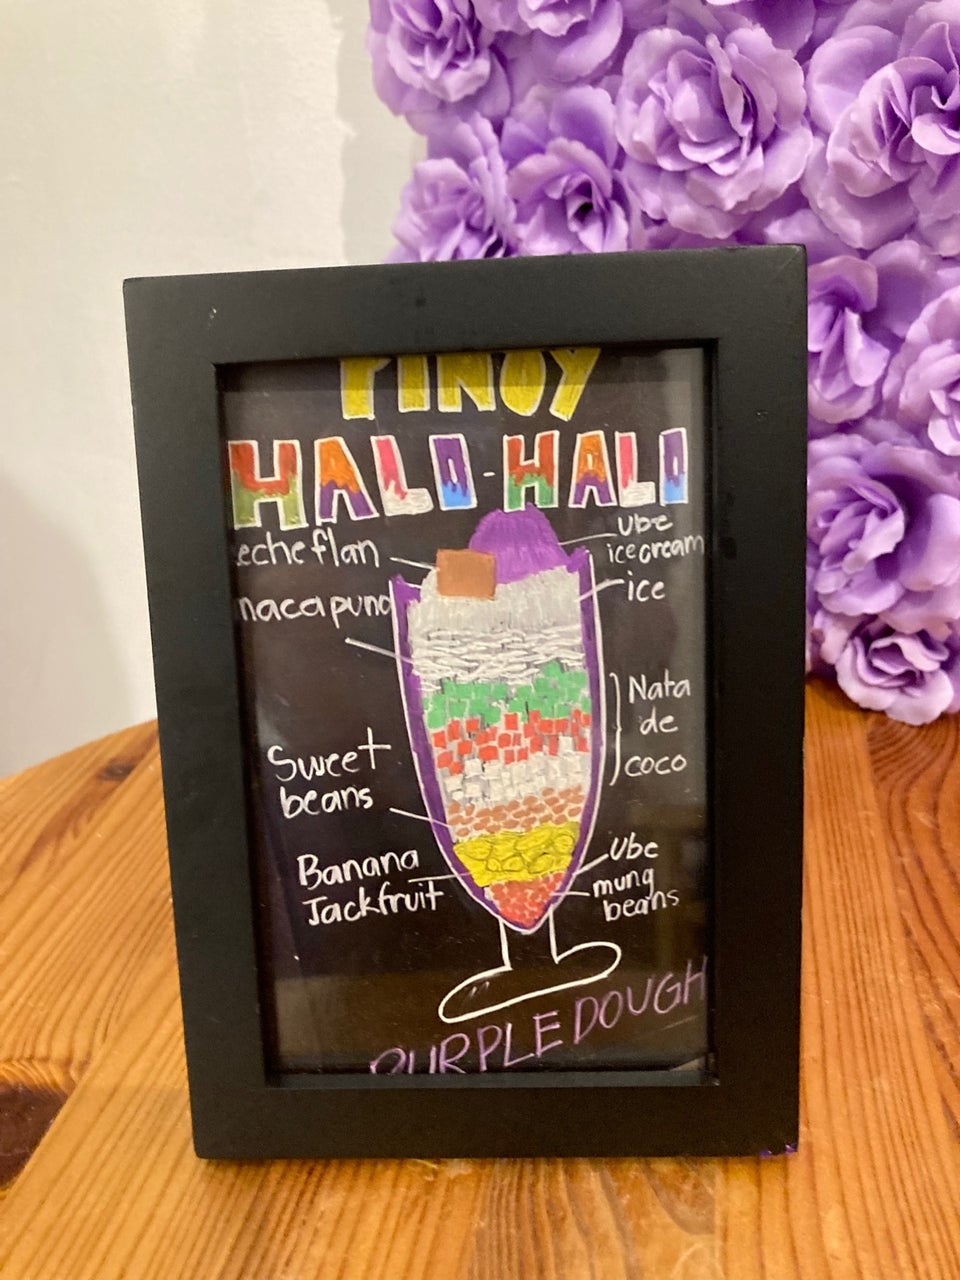 PINOY
HALO-HALO
eche flan
macapuno
Ube
ice cream
ice
Nata
de
coco
Sweet
beans
Banana
Jackfruit
Ube
mung
beans
PURPLE DOUGH